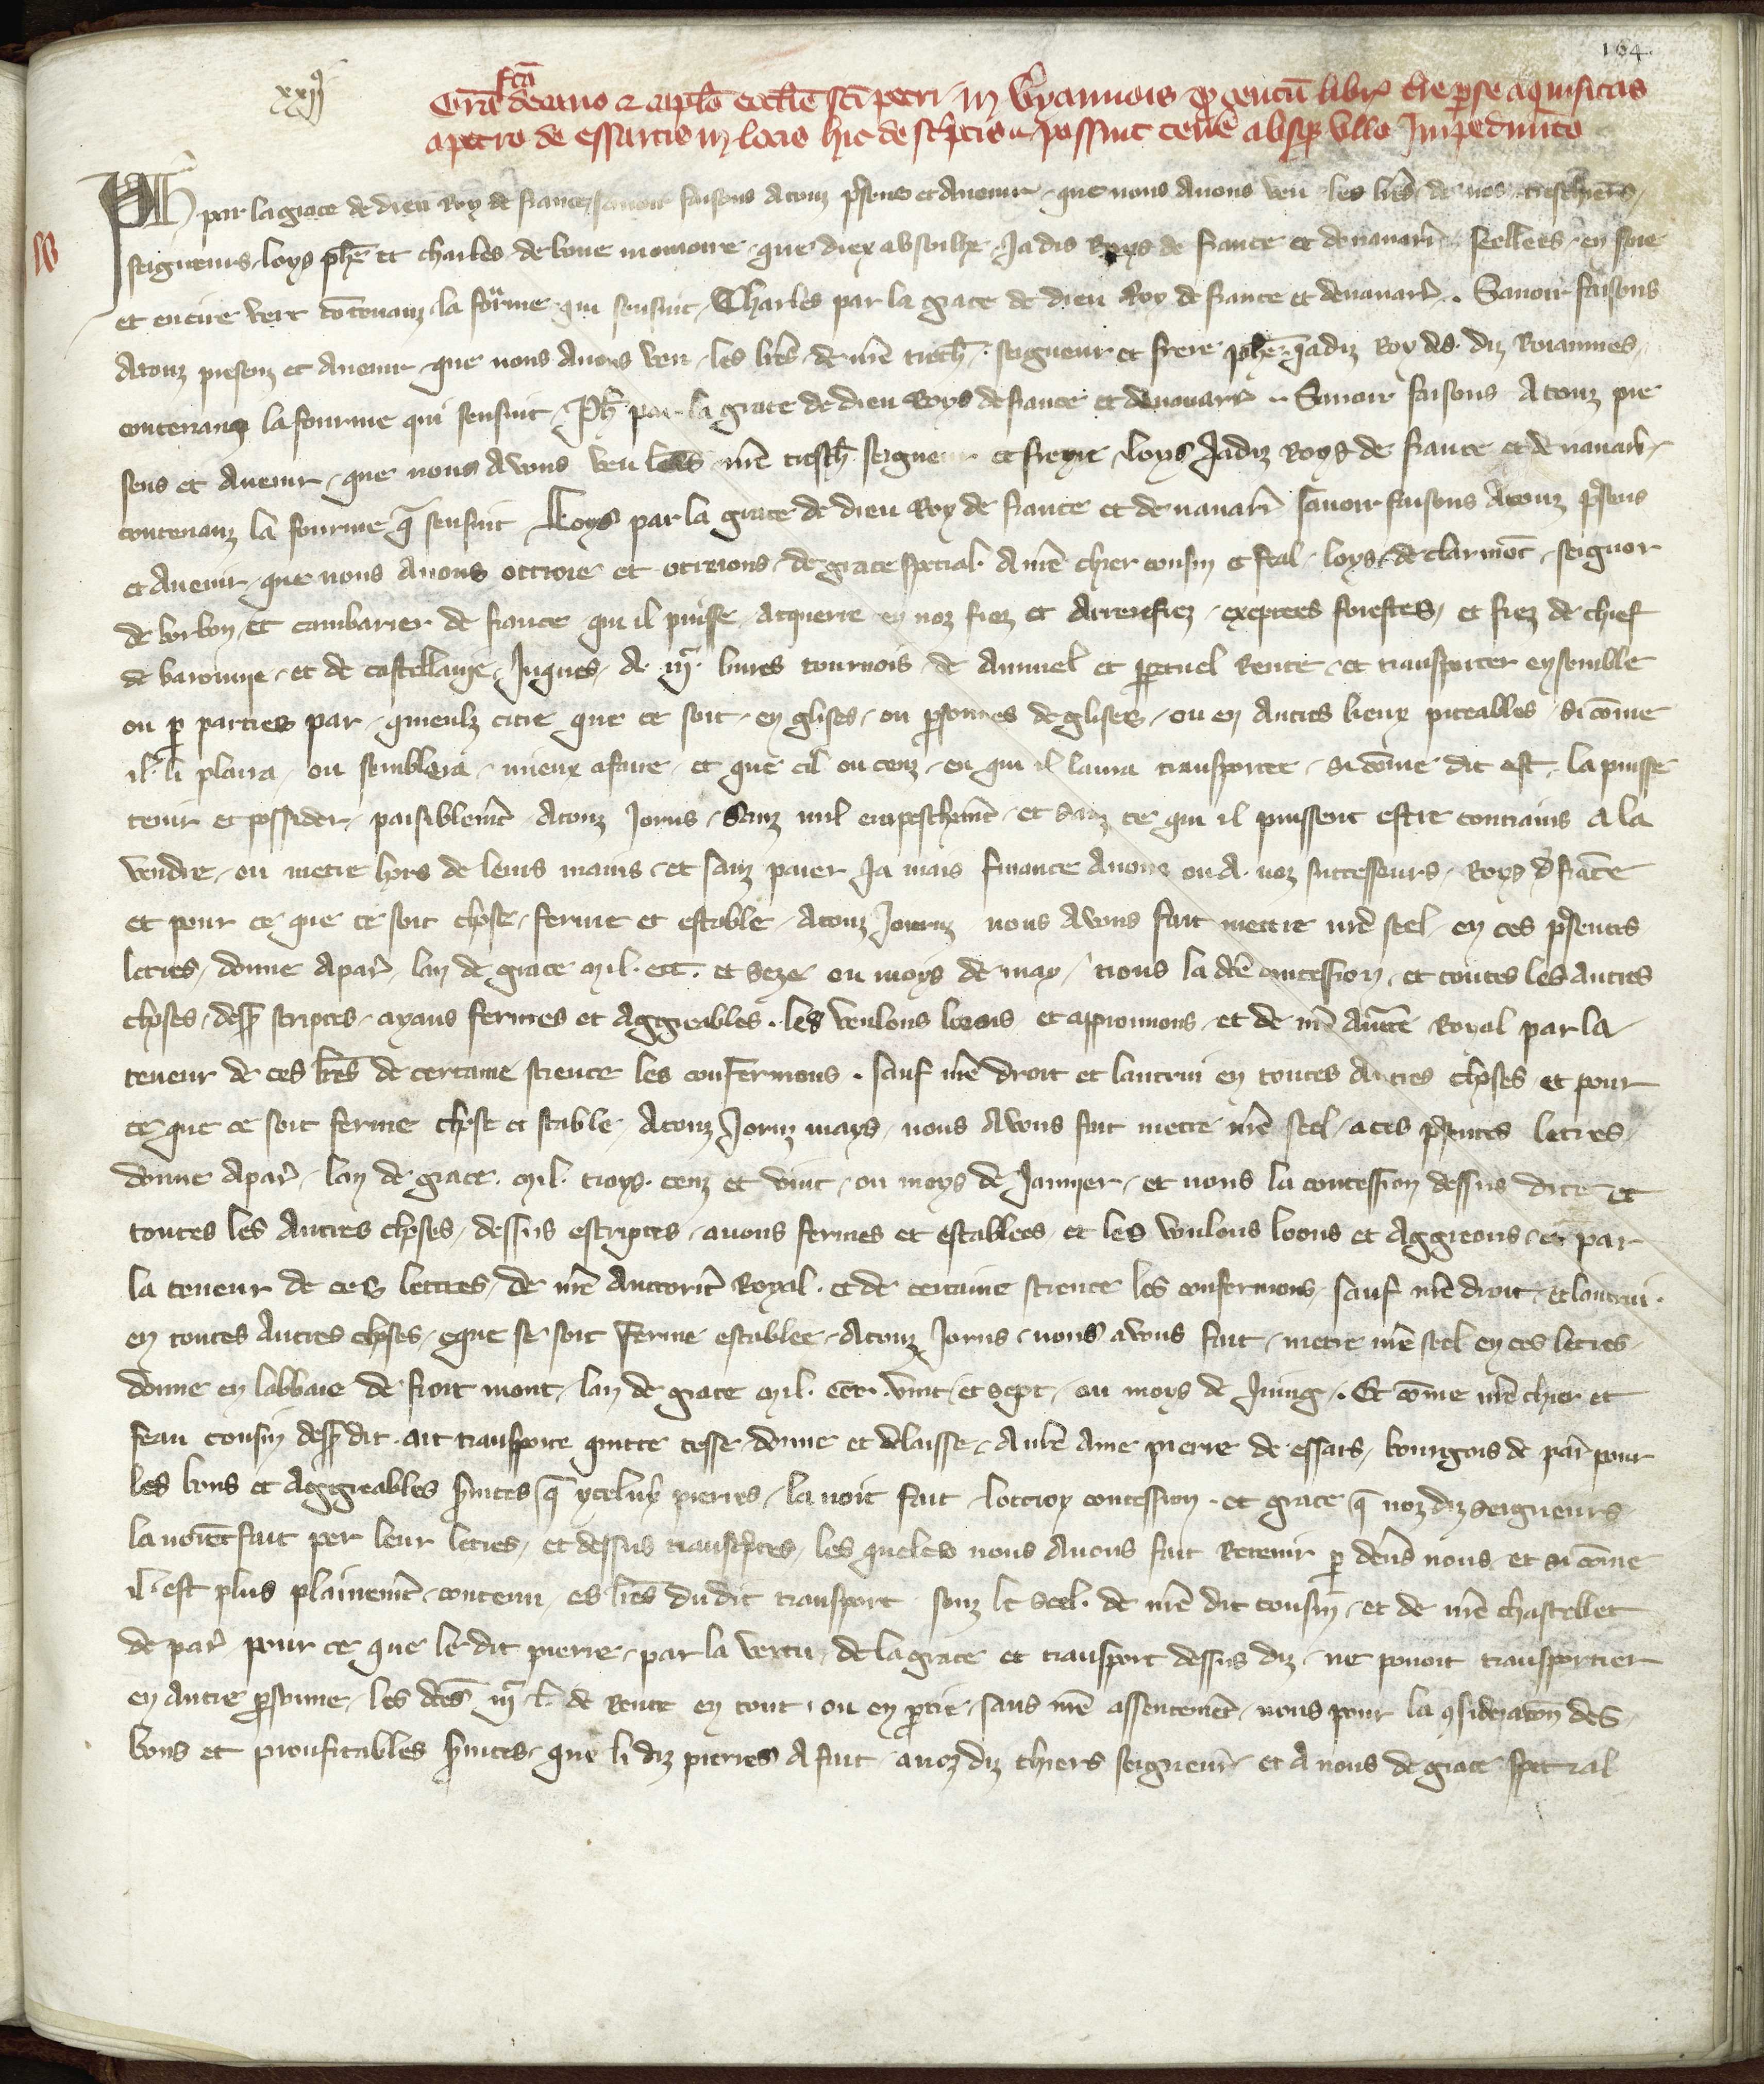 164
xxiij
Grã fcã decano ⁊ capl̃o eccl̃ie sc̃i petri in Gyannois ꝙ centũ libr̃ t̃re ꝑ se aquisitas
a petro de essartis in locis hic descͥptis ⁊ possint tener̃ absqꝫ ullo Impedim̃to
Ph̃ par la grace de dieu Roy de france, sauoir faisons a touz p̃senz et Auenir que nous Auons veu les lr̃es de nos treschiers
seigneurs loys ph̃e et charles de bone memoire que diex absoilhe Jadis Roys de france et de nauarr̃ seellees en soie
et en cire vert cõtenanz la fourme qui sensuit Charles par la grace de dieu Roy de france et de nauarr̃. Sauoir faisons
Atouz presenz et Auenir que nous Auons veu les lr̃es de nr̃e tresch̃. seigneur et frere ph̃e Jadiz Roy des diz Roiaumes
contenanz la fourme qui sensuit Ph̃ par la grace de dieu Roys de france et de nauarr̃. Sauoir faisons A touz pre
sens et Auenir que nous Avons veu les lr̃es nr̃e tresch̃ seigneur et frere loys Jadiz Roys de france et de nauarr̃
contenanz la fourme q̃ sensuit Loys par la grace de dieu Roy de france et de nauarr̃ sauoir faisons Atouz p̃sens
et Auenir que nous Auons ottroie et otreions de grace special A nr̃e chier cousin et feal loys de clarmõt seignor
de borbon et cambarier de france qui il puisse acquerre en noz fiez et Arrerefiez exeptees forestes et fiez de chief
de baronnie et de castellanie Juques A iijͨ liures tournois de Annuel et ꝑpetuel Rente et transporter ensemble
ou ꝑ parties par quieulz titre que ce soit en glises ou ꝑsonnes deglises ou en Autres lieux piteables si cõme
il li plaira ou semblera mieux afaire et que cil ou ceuz en qui il laura transportee si cõme dit est la puisse
tenir et possider paisiblem̃t Atouz Jorns Sanz nul empeschem̃t et sanz ce qui il puissent estre contrains A la
vendre ou metre hors de leurs mains et sanz paier Ja mais finance Anous ou A noz successeurs Roys de frãce
et pour ce que ce soit chose ferme et estable Atouz Jourz nous Avons fait mettre nr̃e seel en ces p̃sentes
letres donne Apar̃ lan de grace mil ccc. et seze ou moys de may nous la dc̃e concession et toutes les autres
choses dess̃ scriptes ayans fermes et Aggreables. les voulons loons et approuuons et de nr̃e Auct̃e Royal par la
teneur de ces lr̃es de certaine science les confermons. sauf nr̃e droit et lautrui en toutes Autres choses et pour
ce que ce soit ferme chose et stable Atouz Jornz mays nous Avons fait metre nr̃e seel a ces p̃sentes letres
donne Apar̃ lan de grace mil troys cenz et vint ou moys de Januier et nous la concession dessus dite et
toutes les Autres choses dessus escriptes auons fermes et establees et les voulons loons et Aggreons et par
la teneur de ces lettres de nr̃e Auctorit̃ Royal et de certaine science les confermons sauf nr̃e droit et lautrui
en toutes Autres choses eque se soit ferme establee Atouz Jorns nous avons fait metre nr̃e seel en ces letres
donne en labbaie de froit mont lan de grace mil ccc. vint et sept ou moys de Juing. Et cõme nr̃e chier et
feau cousin dess̃ dit ait transporte quitte cesse donne et delaisse A nr̃e Ame pierre de essars bourgois de par̃ pour
les bons et Aggreables s̃uices q̃ yceluy pierres lauoit fait lottroy concession et grace q̃ noz diz seigneurs
lauoiẽt fait per leur letres et dessus transcͥptes les queles nous Auons fait Retenir ꝑ deus̃ nous et si cõme
il est plus plainem̃t contenu es lr̃es dudit transport souz le seel de nr̃e dit cousin et de nr̃e chastellet
de par̃ pour ce que le dit pierre par la vertu de la grace et transport dessus diz ne pouoit transporter
en Autre ꝑsonne les dc̃es iijͨ l̃. de Rente en tout ou en ꝑtie sans nr̃e assentem̃t nous pour la ꝯsideraciõ des
bons et proufitables s̃uices que li diz pierres A fait anoz diz chiers seigneurs et A nous de grace special